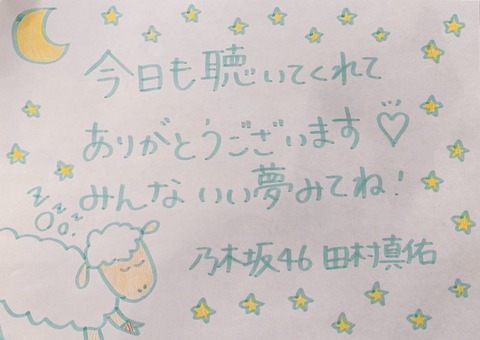 今日も聴いてくれて
ありがとうございます♡
みんないい夢みてね!
zzz
乃木坂46 田村真佑